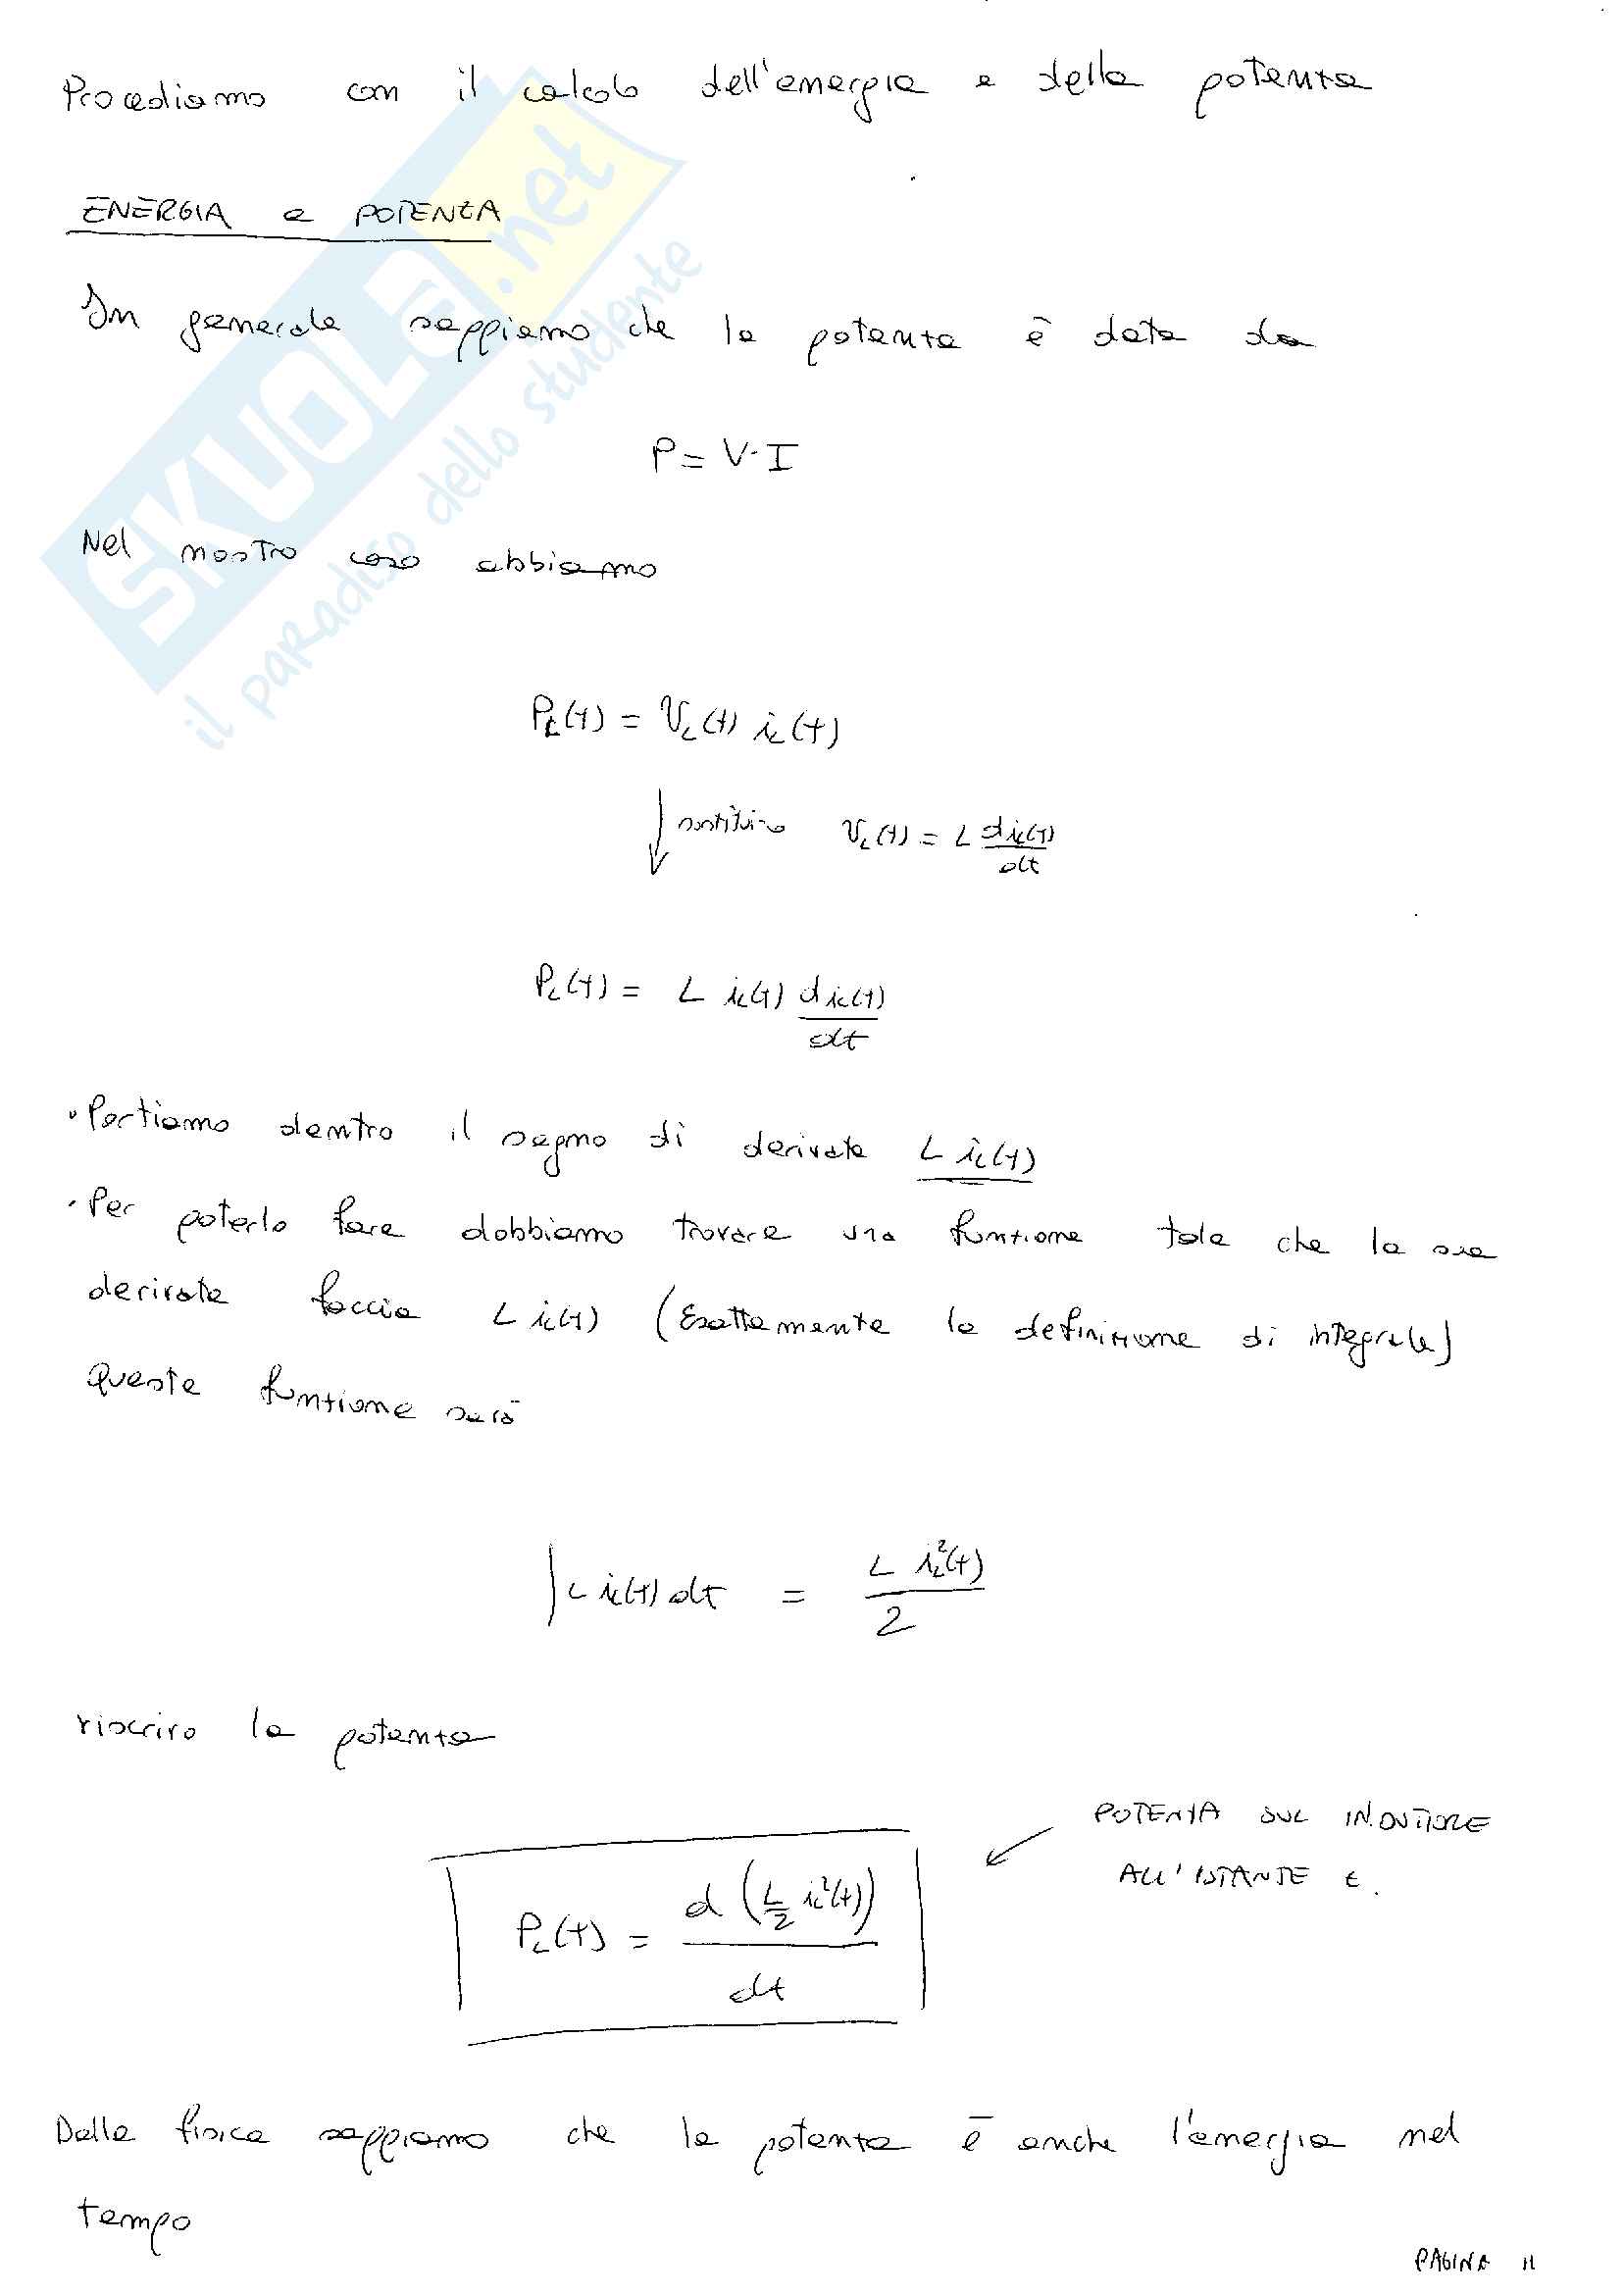 Procediamo con il calcolo dell'energia e della potenza
ENERGIA e POTENZA
In generale sappiamo che la potenza è data da
P = V · I
Nel nostro caso abbiamo
P_L(t) = V_L(t) i_L(t)
sostituisco V_L(t) = L di_L(t)/dt
P_L(t) = L i_L(t) di_L(t)/dt
• Portiamo dentro il segno di derivata L i_L(t)
• Per poterlo fare dobbiamo trovare una funzione tale che la sua
derivata faccia L i_L(t) (Esattamente la definizione di integrale)
Questa funzione sarà
∫ L i_L(t) dt = L i_L²(t)/2
riscrivo la potenza
POTENZA SUL INDUTTORE
ALL'ISTANTE t.
P_L(t) = d (L/2 i_L²(t))/dt
Dalla fisica sappiamo che la potenza è anche l'energia nel
tempo
PAGINA 11
SKUOLA.net
il paradiso dello studente